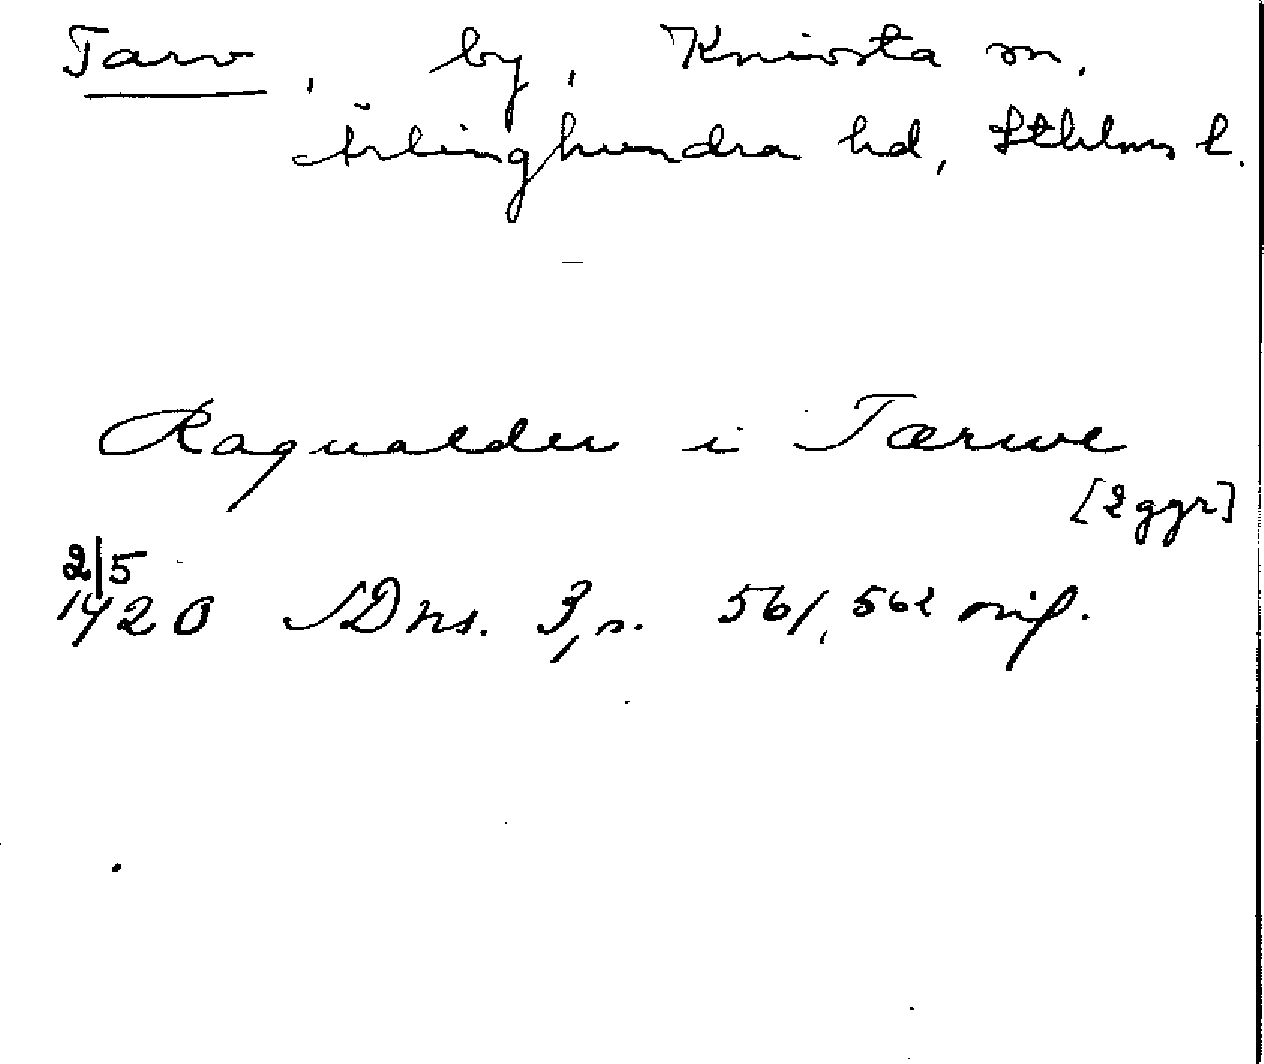 Tarv, by, Knivsta sn,
Ärlinghundra hd, Sthlms l.
Raqualder i Tærwe
[2 ggr]
2/5
1420 SDns. 3, s. 561, 562 orig.